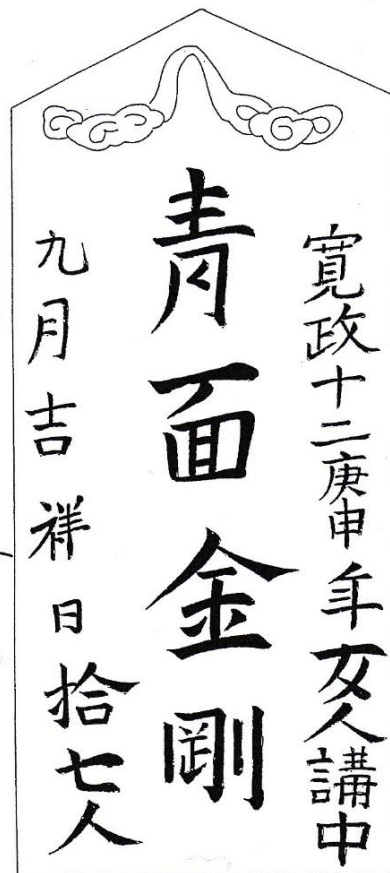 寛政十二庚申年女人講中
青面金剛
九月吉祥日拾七人